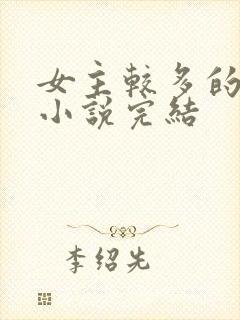 女主較多的
小說完結
李绍先